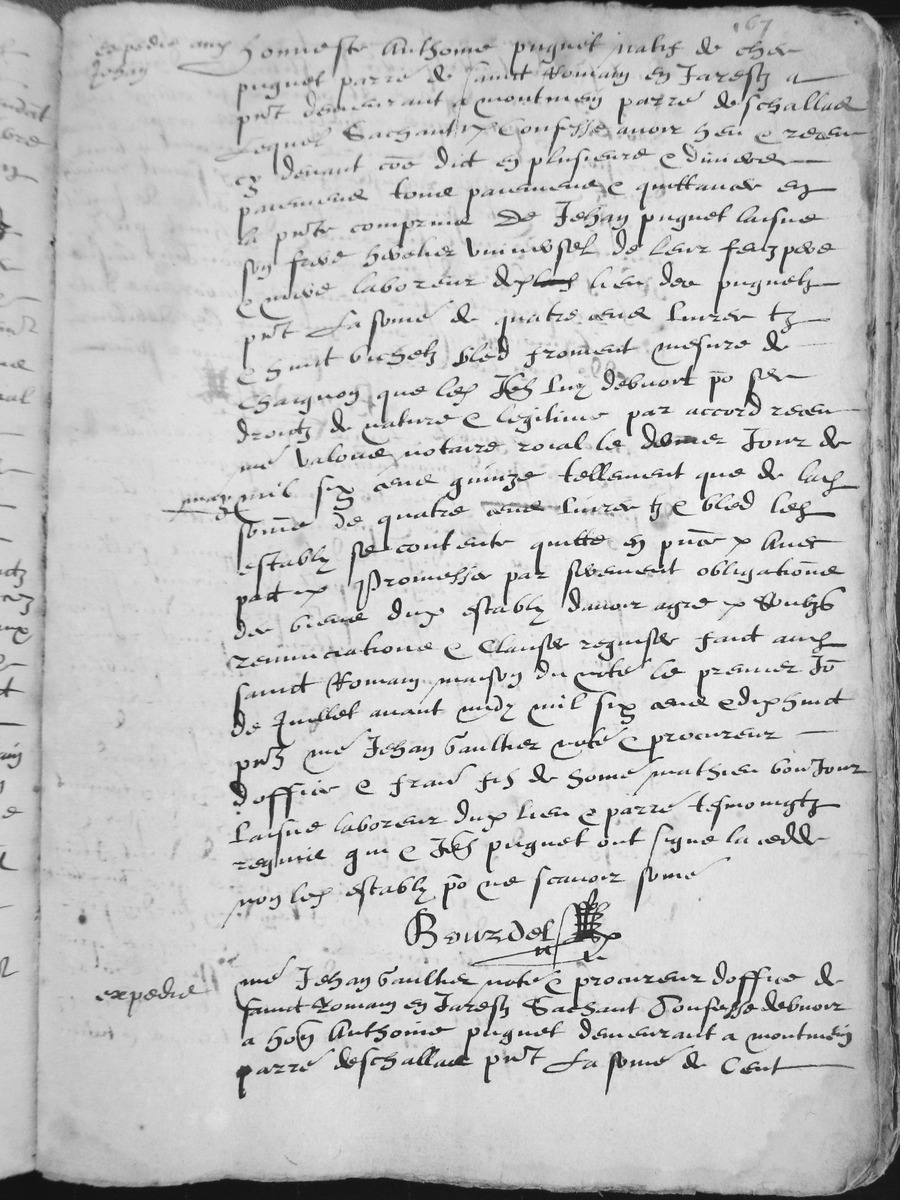 167
expedie aux
Jehan
Honneste Anthoine puguet natif de chez
puguet parre de sainct Romain en Jarestz a
pnt demeurant a montmein parre deschallas
Lequel Sachant Confesse avoir heu e receu
cy devant coe dict en plusieurs e divers
paiemens tous paiemens e quittances en
la pnte comprins De Jehan puguet laisne
son frere heretier universel de leur feuz pere
e mere laboreur lieu des puguetz
pnt La some de quatre cens livres tz
e huict bichetz bled froment mesure de
Chaignon que led Jeh luy debvoit po ses
droictz de nature e legitime par accord receu
me valous notaire roial le dernier Jour de
may mil six cens quinze tellement que de lad
somme de quatre cens livres tz e bled led
estably se contente quitte en pnce Avec
pact Promesses par serement obligations
des biens dud estably davoir agre Soubzs
renunciations e Clauses requises faict aud
sainct Romain maison du note le premier Jo
de Juillet avant midy mil six cens e dix huict
pntz me Jehan Gaultier note e procureur
doffice e frais filz de home mathieu bon Jour
Laisne laboreur dud lieu e parre tesmoingtz
requis qui e Jeh puguet ont signe la cedde
non led estably po ne scavoir some
Bourdel
expedie
me Jehan Gaultier note e procureur doffice de
sainct Romain en Jarestz Sachant Confesse debvoir
a hon Anthoine puguet demeurant a montmein
parre deschallas pnt La some de Cent